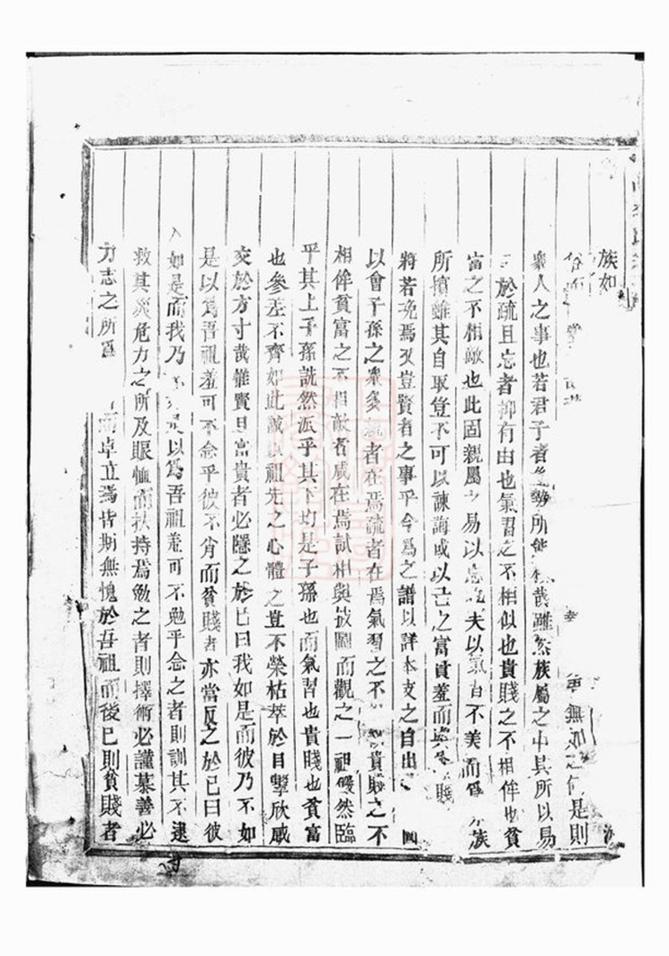 族如
俗 無 是則
衆人之事也若君子者 勢所能 哉雖然族屬之中其所以易
於疏且忘者抑有由也氣習之不相似也貴賤之不相侔也貧
富之不相敵也此固親屬之易以忘 夫以氣習不美而為 族
所擯雖其自取豈不可以諫誨或以己之富貴羞而與 賤
將若浼焉 豈賢者之事乎今為之譜以詳本支之自出 圖
以會子孫之衆多親者在焉疏者在焉氣習之不 貴賤之不
相侔貧富之不相敵者咸在焉試相與披圖而觀之一祖儼然臨
乎其上子孫詵然派乎其下均是子孫也而氣習也貴賤也貧富
也參差不齊如此試以祖先之心體之豈不榮枯萃於目擊欣戚
交於方寸哉惟賢且富貴者必隱之於己曰我如是而彼乃不如
是以為吾祖羞可不念乎彼不肖而貧賤者亦當反之於己曰彼
人如是而我乃 是以為吾祖羞可不勉乎念之者則訓其不逮
救其災危力之所及賑恤而扶持焉勉之者則擇術必謹慕善必
力志之所為 而卓立焉皆期無愧於吾祖而後已則貧賤者